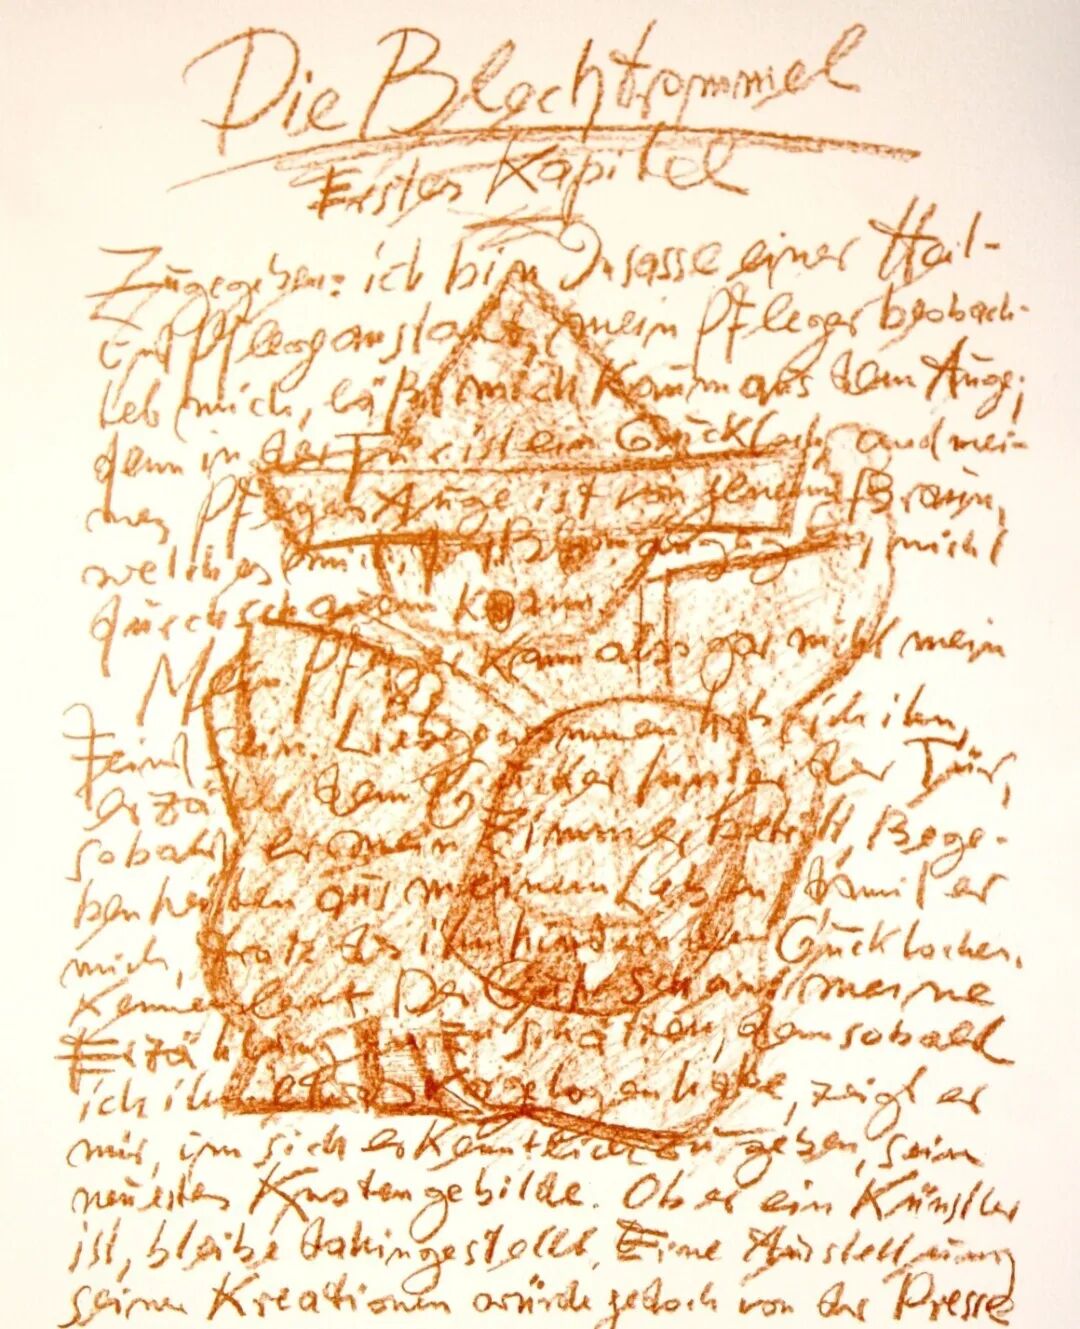 Die Blechtrommel
Erstes Kapitel
Zugegeben: ich bin Insasse einer Heil-
und Pflegeanstalt, mein Pfleger beobach-
tet mich, läßt mich kaum aus dem Auge;
denn in der Tür ist ein Guckloch, und mei-
nes Pflegers Auge ist von jenem Braun,
welches mich, nicht
durchschauen kann.
Mein Pfleger kann also gar nicht mein
Feind sein. Liebgewonnen hab ich ihn,
erzähle dem Gucker hinter der Tür,
sobald er mein Zimmer betritt, Bege-
benheiten aus meinem Leben, damit er
mich, trotz des ihn hindernden Guckloches,
kennenlernt. Der Gute scheint meine
Erzählungen zu schätzen, denn sobald
ich ihm etwas vorgelogen habe, zeigt er
mir, um sich erkenntlich zu geben, sein
neuestes Knotengebilde. Ob er ein Künstler
ist, bleibe dahingestellt. Eine Ausstellung
seiner Kreationen würde jedoch von der Presse